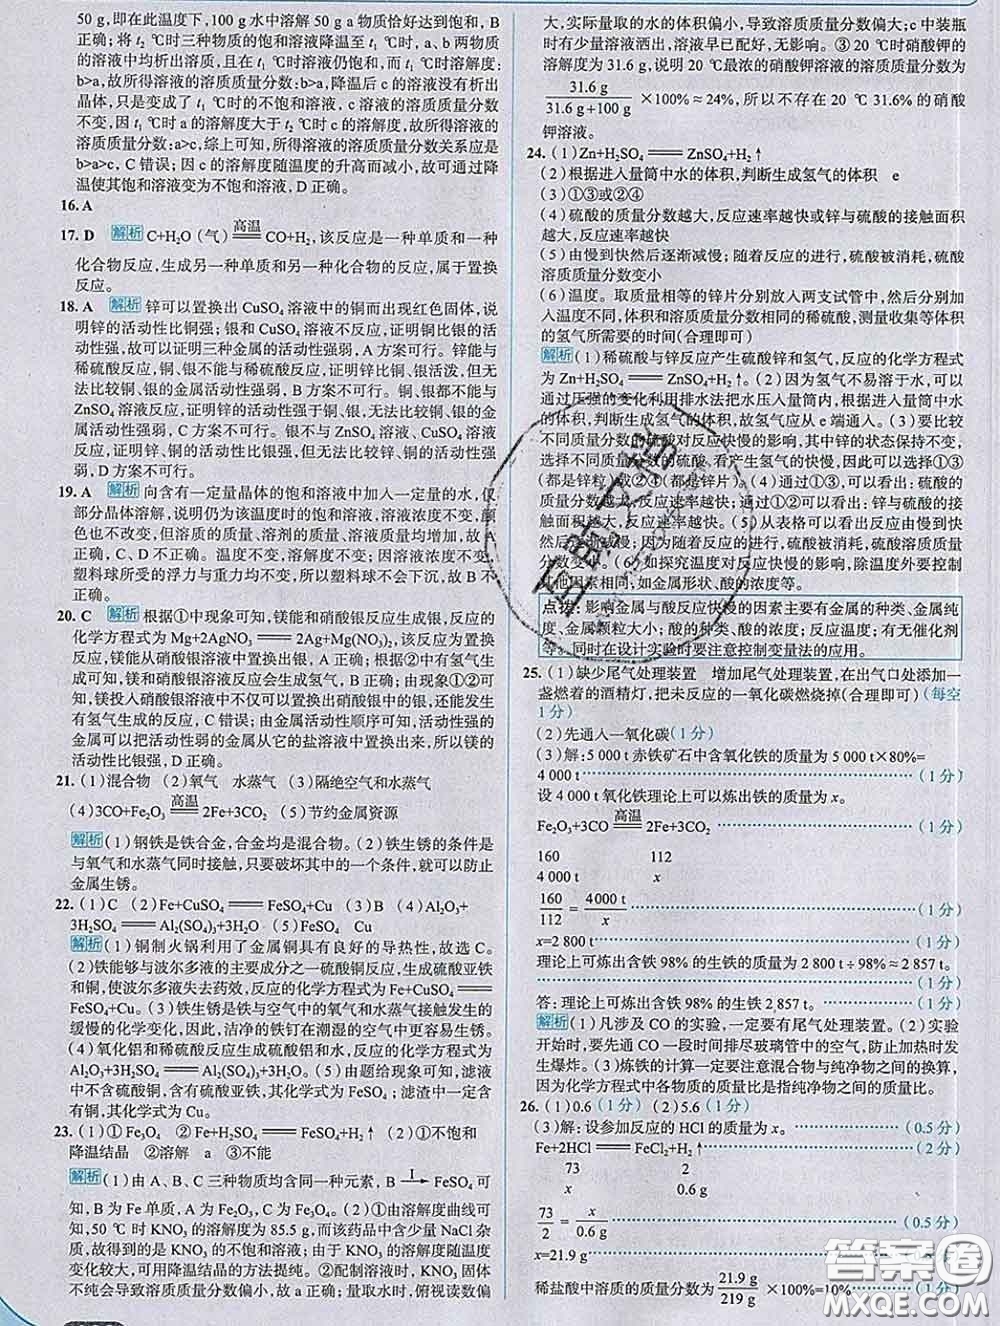 50 g,即在此温度下,100 g水中溶解50 g a物质恰好达到饱和,B
正确;将t₂ ℃时三种物质的饱和溶液降温至t₁ ℃时,a、b两物质
的溶液中均析出溶质,且在t₁ ℃时溶液仍饱和,而t₁ ℃时溶解度:
b>a,故所得溶液的溶质质量分数:b>a,降温后c的溶液没有析出
晶体,只是变成了t₁ ℃时的不饱和溶液,c溶液的溶质质量分数
不变,因t₁ ℃时a的溶解度大于t₂ ℃时c的溶解度,故所得溶液的
溶质质量分数:a>c,综上可知,所得溶液的溶质质量分数关系应是
b>a>c,C错误;因c的溶解度随温度的升高而减小,故可通过降
温使其饱和溶液变为不饱和溶液,D正确。
16. A
17. D 解析 C+H₂O(气)══高温══CO+H₂,该反应是一种单质和一种
化合物反应,生成另一种单质和另一种化合物的反应,属于置换
反应。
18. A 解析 锌可以置换出CuSO₄溶液中的铜而出现红色固体,说
明锌的活动性比铜强;银和CuSO₄溶液不反应,证明铜比银的活
动性强,故可以证明三种金属的活动性强弱,A方案可行。锌能与
稀硫酸反应,铜、银不能与稀硫酸反应,证明锌比铜、银活泼,但无
法比较铜、银的金属活动性强弱,B方案不可行。铜、银都不能与
ZnSO₄溶液反应,证明锌的活动性强于铜、银,无法比较铜、银的金
属活动性强弱,C方案不可行。银不与ZnSO₄溶液、CuSO₄溶液反
应,证明锌、铜的金属活动性比银强,但无法比较锌、铜的金属活动
性强弱,D方案不可行。
19. A 解析 向含有一定量晶体的饱和溶液中加入一定量的水,仅
部分晶体溶解,说明仍为该温度时的饱和溶液,溶液浓度不变,颜
色也不改变,但溶质的质量、溶剂的质量、溶液质量均增加,故A
正确,C、D不正确。温度不变,溶解度不变;因溶液浓度不变,
塑料球所受的浮力与重力均不变,所以塑料球不会下沉,故B不
正确。
20. C 解析 根据①中现象可知,镁能和硝酸银反应生成银,反应的
化学方程式为Mg+2AgNO₃══2Ag+Mg(NO₃)₂,该反应为置换
反应,镁能从硝酸银溶液中置换出银;根据②中有氢气生成
可知,镁和硝酸银溶液反应会生成氢气;由现象①②可知,
镁投入硝酸银溶液中,除了发生镁与硝酸银的反应外,还能发生
有氢气生成的反应,C错误;由金属活动性顺序可知,活动性强的
金属可以把活动性弱的金属从它的盐溶液中置换出来,所以镁的
活动性大于银。
21. (1)混合物 (2)氧气 水蒸气 (3)隔绝空气和水蒸气
(4)3CO+Fe₂O₃══高温══2Fe+3CO₂ (5)节约金属资源
解析 (1)钢铁是铁合金,合金均是混合物。(2)铁生锈的条件是
与氧气和水蒸气同时接触,只要破坏其中的一个条件,就可以防止
金属生锈。
22. (1)C (2)Fe+CuSO₄══FeSO₄+Cu (3)B (4)Al₂O₃+
3H₂SO₄══Al₂(SO₄)₃+3H₂O (5)FeSO₄ Cu
解析 (1)铜制火锅利用了金属铜具有良好的导热性,故选C。
(2)铁能够与波尔多液的主要成分之一硫酸铜反应,生成硫酸亚铁
和铜,使波尔多液失去药效,反应的化学方程式为Fe+CuSO₄══
FeSO₄+Cu。(3)铁生锈是铁与空气中的氧气和水蒸气接触发生的
缓慢的化学变化,因此,洁净的铁钉在潮湿的空气中更容易生锈。
(4)氧化铝和稀硫酸反应生成硫酸铝和水,反应的化学方程式为
Al₂O₃+3H₂SO₄══Al₂(SO₄)₃+3H₂O。(5)由题给现象可知,滤液
中不含硫酸铜,含有硫酸亚铁,其化学式为FeSO₄,滤渣中一定含
有铜,其化学式为Cu。
23. (1)①Fe₃O₄ ②Fe+H₂SO₄══FeSO₄+H₂↑ (2)①不饱和
降温结晶 ②溶解 a ③不能
解析 (1)由A、B、C三种物质均含同一种元素,B—I→FeSO₄可
知,B为Fe单质,A为Fe₂O₃,C为Fe₃O₄。(2)①由溶解度曲线可
知,50 ℃时KNO₃的溶解度为85.5 g,而该药品中含少量NaCl杂
质,故得到的是KNO₃的不饱和溶液;由于KNO₃的溶解度随温度
变化较大,可用降温结晶的方法提纯。②配制溶液时,KNO₃固体
不纯会导致溶质质量分数偏小,故a正确;量取水时,俯视读数偏
大,实际量取的水的体积偏小,导致溶质质量分数偏大;c中装瓶
时有少量溶液洒出,溶液早已配好,无影响。③20 ℃时硝酸钾的
溶解度为31.6 g,说明20 ℃最浓的硝酸钾溶液的溶质质量分数为
31.6 g/(31.6 g+100 g)×100%≈24%,所以不存在20 ℃ 31.6%的硝酸
钾溶液。
24. (1)Zn+H₂SO₄══ZnSO₄+H₂↑
(2)根据进入量筒中水的体积,判断生成氢气的体积 e
(3)①③或②④
(4)硫酸的质量分数越大,反应速率越快或锌与硫酸的接触面积
越大,反应速率越快
(5)由慢到快然后逐渐减慢;随着反应的进行,硫酸被消耗,硫酸
溶质质量分数变小
(6)温度。取质量相等的锌片分别放入两支试管中,然后分别加
入温度不同,体积和溶质质量分数相同的稀硫酸,测量收集等体积
的氢气所需要的时间(合理即可)
解析 (1)稀硫酸与锌反应产生硫酸锌和氢气,反应的化学方程式
为Zn+H₂SO₄══ZnSO₄+H₂↑。(2)因为氢气不易溶于水,可以
通过压强的变化利用排水法把水压入量筒内,根据进入量筒中水
的体积,判断生成氢气的体积,故氢气应从e端通入。(3)要比较
不同质量分数的硫酸对反应快慢的影响,其中锌的状态保持不变,
选择不同质量分数的硫酸,看产生氢气的快慢,因此可以选择①③
(都是锌粒)或②④(都是锌片)。(4)通过①③可以看出:硫酸质
量分数越大,反应速率越快;通过①②可以看出:锌与硫酸的接触
面积越大,反应速率越快。(5)从表格可以看出反应由慢到快
然后逐渐减慢;因为随着反应的进行,硫酸被消耗,硫酸溶质质量
分数变小。(6)如探究温度对反应快慢的影响,除温度外还要控制
其他因素相同,如金属形状、酸的浓度等。
点拨:影响金属与酸反应快慢的因素主要有金属的种类、金属纯
度、金属颗粒大小;酸的种类、酸的浓度;反应温度;有无催化剂
等。同时在设计实验时要注意控制变量法的应用。
25. (1)缺少尾气处理装置 增加尾气处理装置,在出气口处添加一
盏燃着的酒精灯,把未反应的一氧化碳燃烧掉(合理即可)(每空
1分)
(2)先通入一氧化碳(1分)
(3)解:5 000 t赤铁矿石中含氧化铁的质量为5 000 t×80%=
4 000 t (1分)
设4 000 t氧化铁理论上可以炼出铁的质量为x。
Fe₂O₃+3CO══高温══2Fe+3CO₂ (1分)
160 112
4 000 t x
160/112=4 000 t/x (1分)
x=2 800 t (1分)
理论上可炼出含铁98%的生铁的质量为2 800 t÷98%≈2 857 t
(1分)
答:理论上可炼出含铁98%的生铁2 857 t。 (1分)
解析 (1)凡涉及CO的实验,一定要有尾气处理装置。(2)实验
开始时,要先通CO一段时间排尽玻璃管中的空气,防止加热时发
生爆炸。(3)炼铁的计算一定要注意混合物与纯净物之间的换算,
因为化学方程式中各物质的质量比是指纯净物之间的质量比。
26. (1)0.6(1分) (2)5.6(1分)
(3)解:设参加反应的HCl的质量为x。 (0.5分)
Fe+2HCl══FeCl₂+H₂↑ (2分)
73 2
x 0.6 g
73/2=x/0.6 g (0.5分)
x=21.9 g
稀盐酸中溶质的质量分数为21.9 g/219 g×100%=10% (1分)
答案圈
MXQE.COM